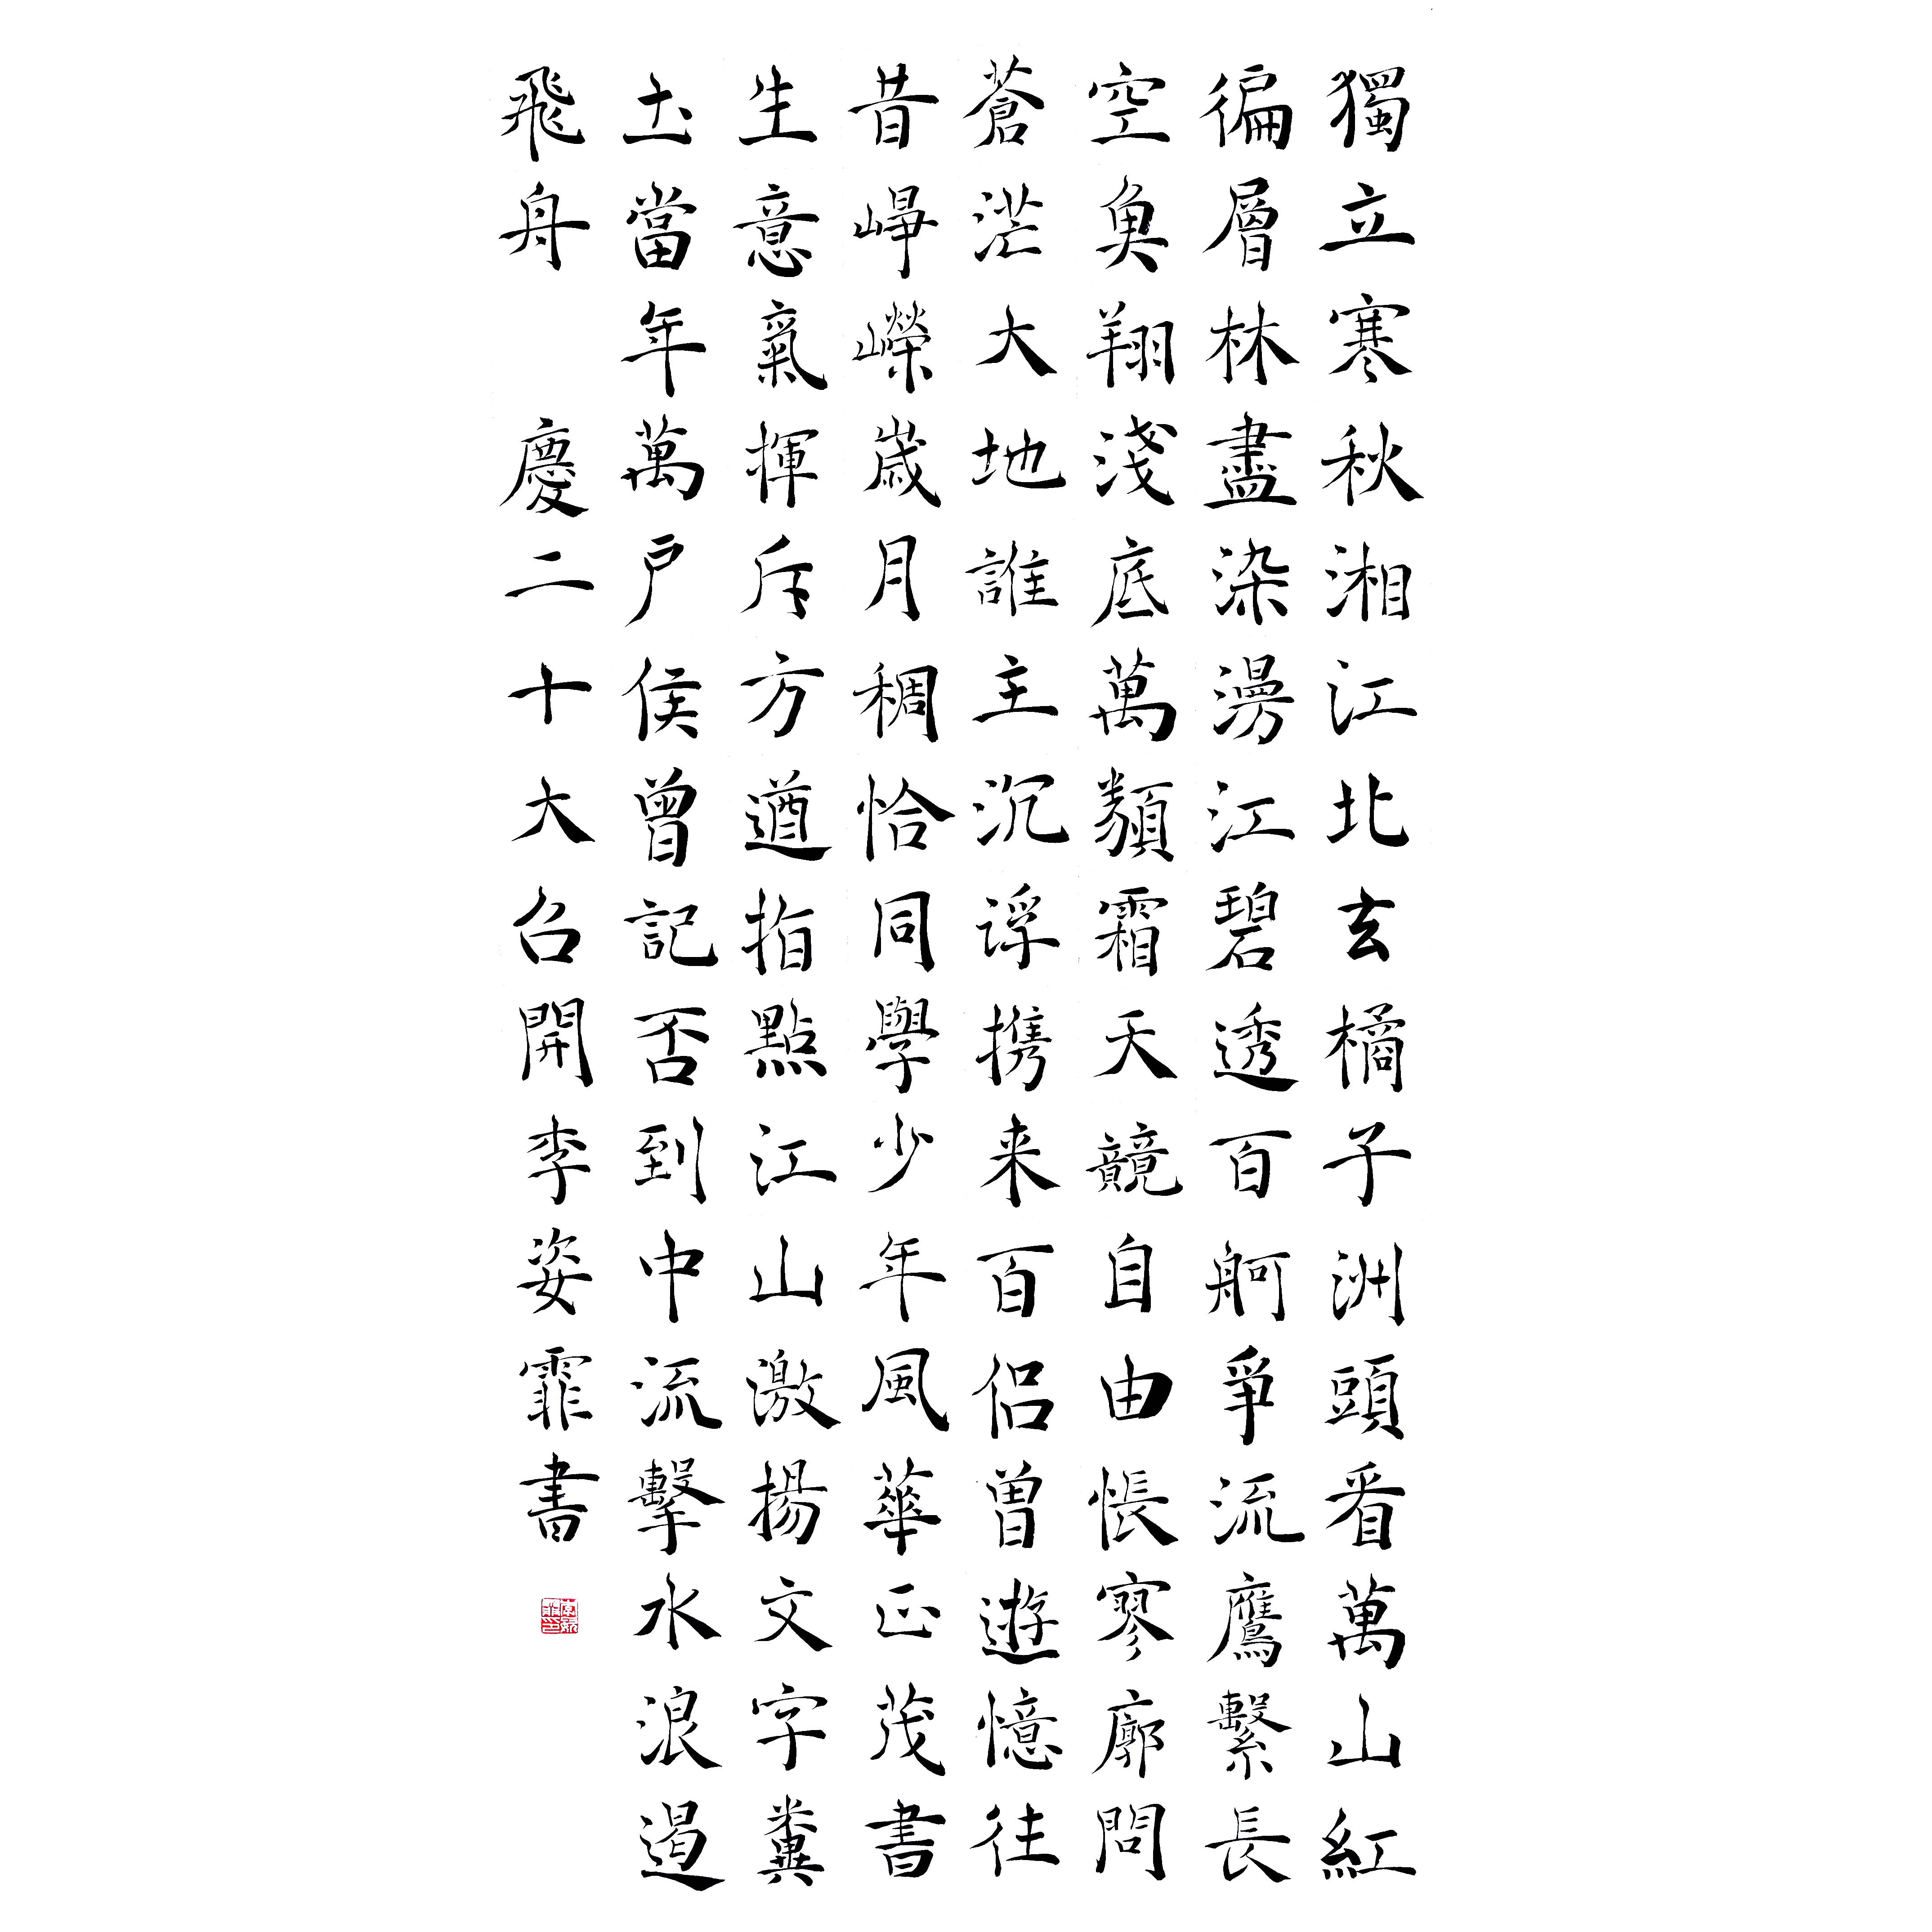 獨立寒秋湘江北去橘子洲頭看萬山紅
徧層林盡染漫江碧透百舸爭流鷹繫長
空魚翔淺底萬類霜天競自由悵寥廓問
蒼茫大地誰主沉浮携来百侶曾遊憶往
昔崢嶸歲月稠恰同學少年風華正茂書
生意氣揮斥方遒指點江山激揚文字糞
土當年萬戶侯曾記否到中流擊水浪遏
飛舟 慶二十大召開李姿霏書